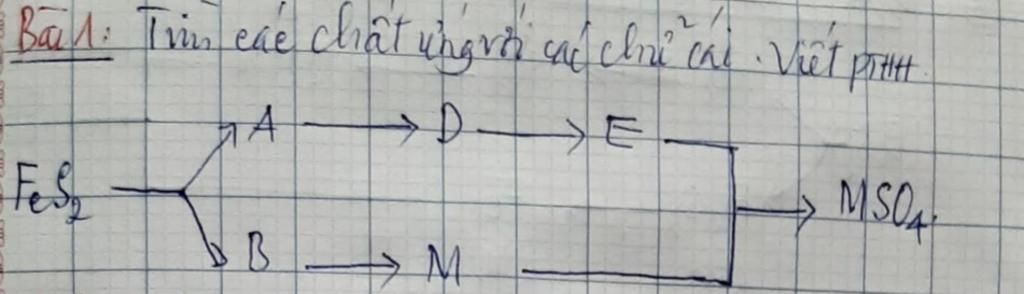 Bài 1: Tìm các chất ứng với các chữ cái. Viết PTHH
A → D → E
FeS₂ → MSO₄.
B → M